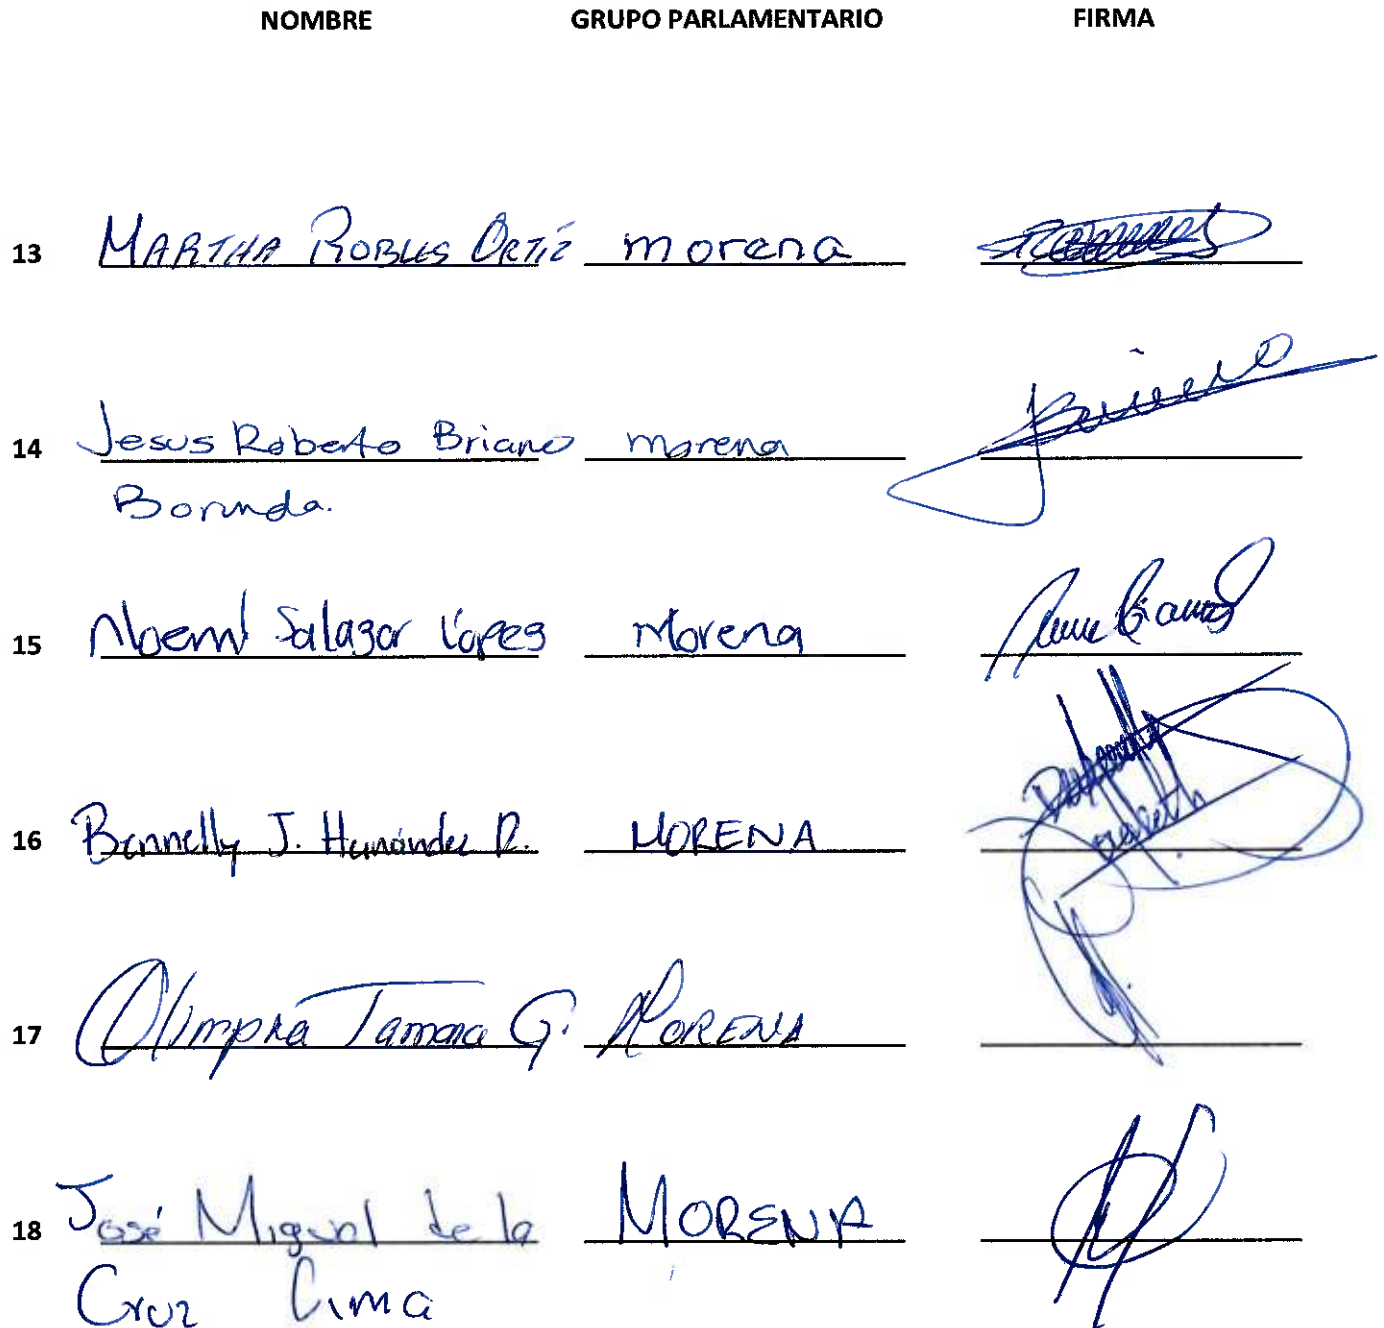 NOMBRE GRUPO PARLAMENTARIO FIRMA
13 MARTHA ROBLES ORTÍZ morena
14 Jesus Roberto Briano morena
Borunda.
15 Noemí Salazar López Morena
16 Bennelly J. Hernández R. MORENA
17 Olimpia Tamara G. MORENA
18 José Miguel de la MORENA
Cruz Lima